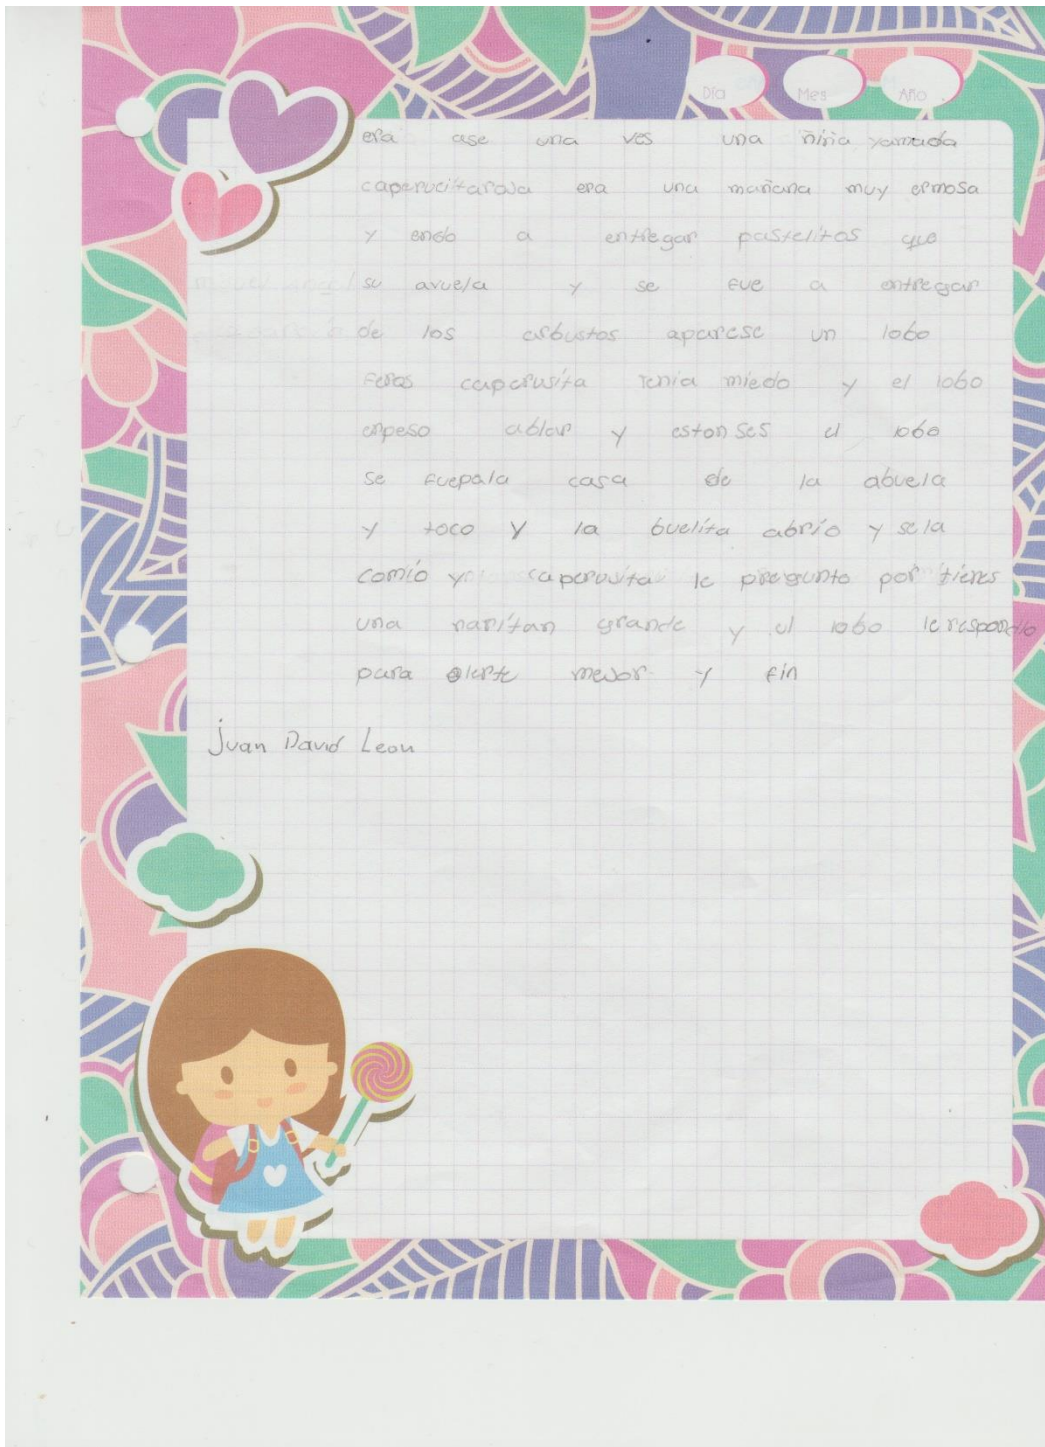 Día Mes Año
era ase una ves una niña yamada
caperucitaroja era una mañana muy ermosa
y endo a entregar pastelitos que
su avuela y se fue a entregar
de los arbustos aparese un lobo
feros caperusita tenia miedo y el lobo
enpeso ablar y estonses el lobo
se fuepala casa de la abuela
y toco y la buelita abrio y sela
comio y caperusita le pregunto por tienes
una naritan grande y el lobo le respondio
para olerte mejor y fin
Juan David Leon